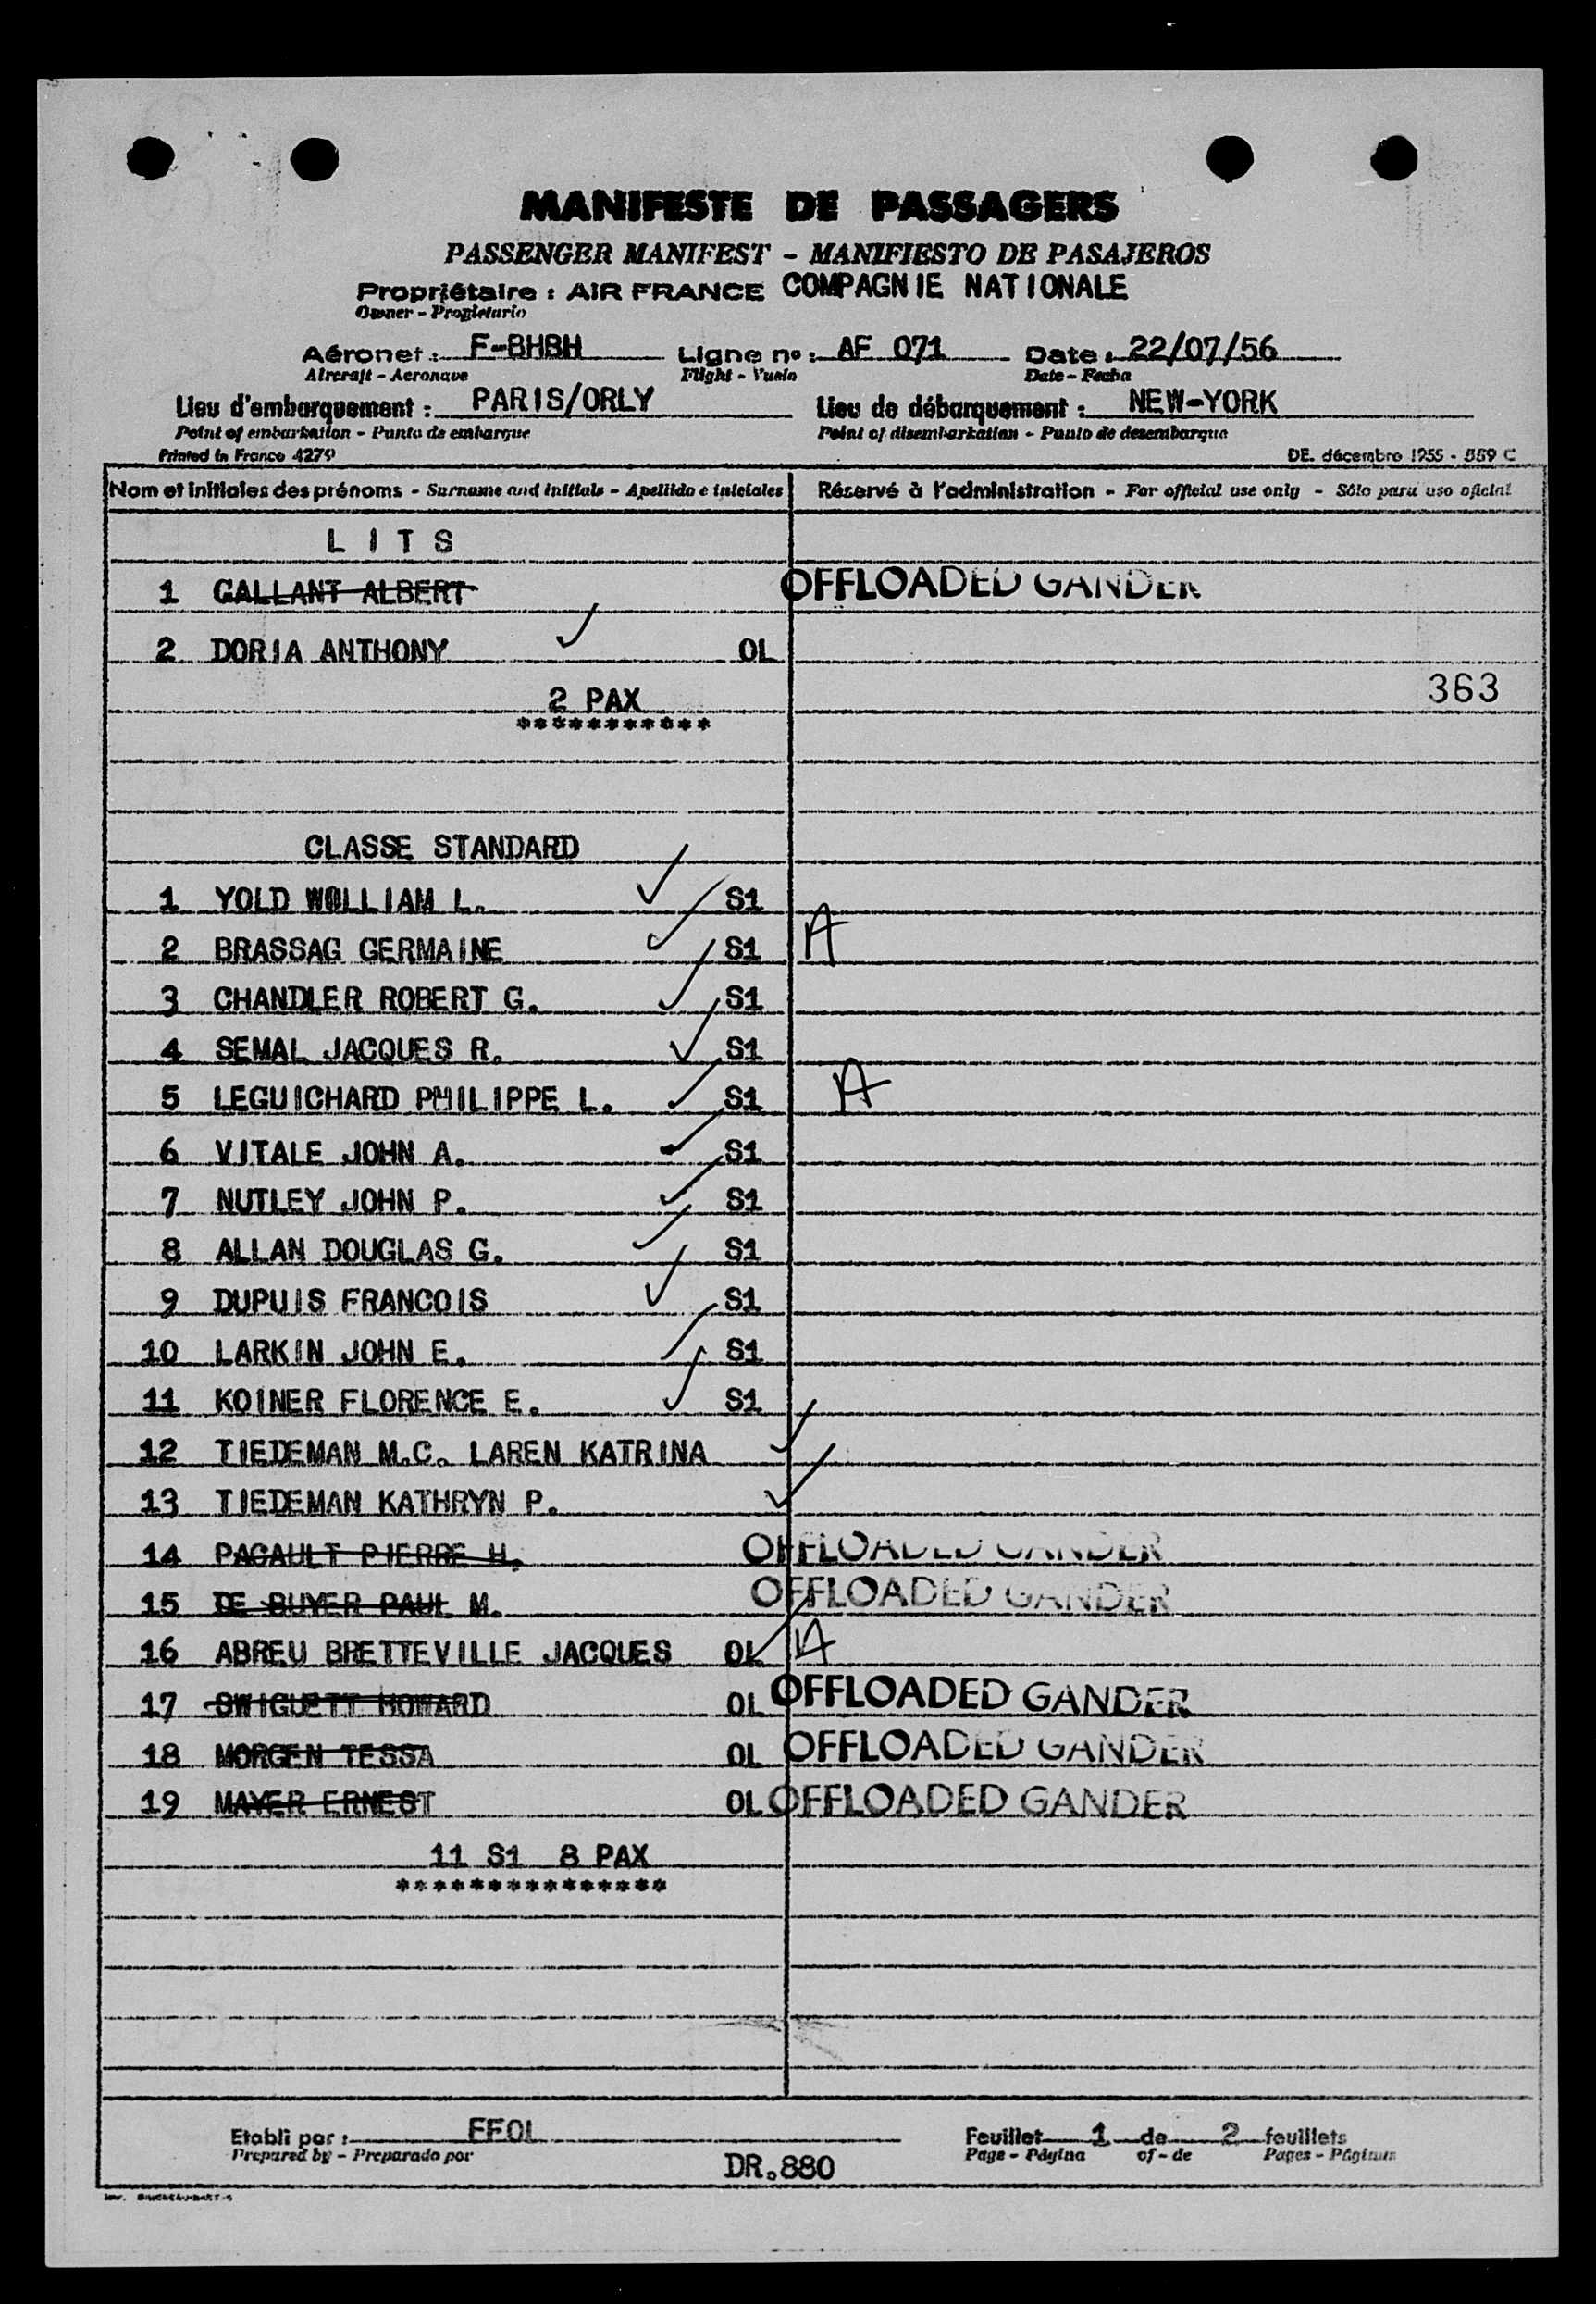 MANIFESTE DE PASSAGERS
PASSENGER MANIFEST - MANIFIESTO DE PASAJEROS
Propriétaire : AIR FRANCE COMPAGNIE NATIONALE
Owner - Propietario
Aéronef : F-BHBH Ligne n° : AF 071 Date : 22/07/56
Aircraft - Aeronave Flight - Vuelo Date - Fecha
Lieu d'embarquement : PARIS/ORLY Lieu de débarquement : NEW-YORK
Point of embarkation - Punto de embarque Point of disembarkation - Punto de desembarque
Printed in France 4279 DE. décembre 1955 - 559 C
Nom et initiales des prénoms - Surname and initials - Apellido e iniciales Réservé à l'administration - For official use only - Sólo para uso oficial
LITS
1 GALLANT ALBERT OFFLOADED GANDER
2 DORIA ANTHONY OL
2 PAX 363
***********
CLASSE STANDARD
1 YOLD WOLLIAM L. S1
2 BRASSAG GERMAINE S1 A
3 CHANDLER ROBERT G. S1
4 SEMAL JACQUES R. S1
5 LEGUICHARD PHILIPPE L. S1 A
6 VITALE JOHN A. S1
7 NUTLEY JOHN P. S1
8 ALLAN DOUGLAS G. S1
9 DUPUIS FRANCOIS S1
10 LARKIN JOHN E. S1
11 KOINER FLORENCE E. S1
12 TIEDEMAN M.C. LAREN KATRINA
13 TIEDEMAN KATHRYN P.
14 PAGAULT PIERRE H. OFFLOADED GANDER
15 DE BUYER PAUL M. OFFLOADED GANDER
16 ABREU BRETTEVILLE JACQUES OL A
17 SWIGUETT HOWARD OL OFFLOADED GANDER
18 MORGEN TESSA OL OFFLOADED GANDER
19 MAYER ERNEST OL OFFLOADED GANDER
11 S1 8 PAX
***************
Etabli par : FFOL Feuillet 1 de 2 feuillets
Prepared by - Preparado por Page - Página of - de Pages - Páginas
DR.880